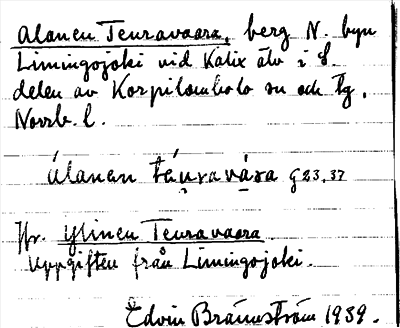 Alanen Teuravaara, berg N. byn
Limingojoki vid Kalix älv i S.
delen av Korpilombolo sn och tg,
Norrb. l.
álanen táu̯ravāra G 23, 37
Jfr. Ylinen Teuravaara
Uppgiften från Limingojoki.
Edvin Brännström 1939.